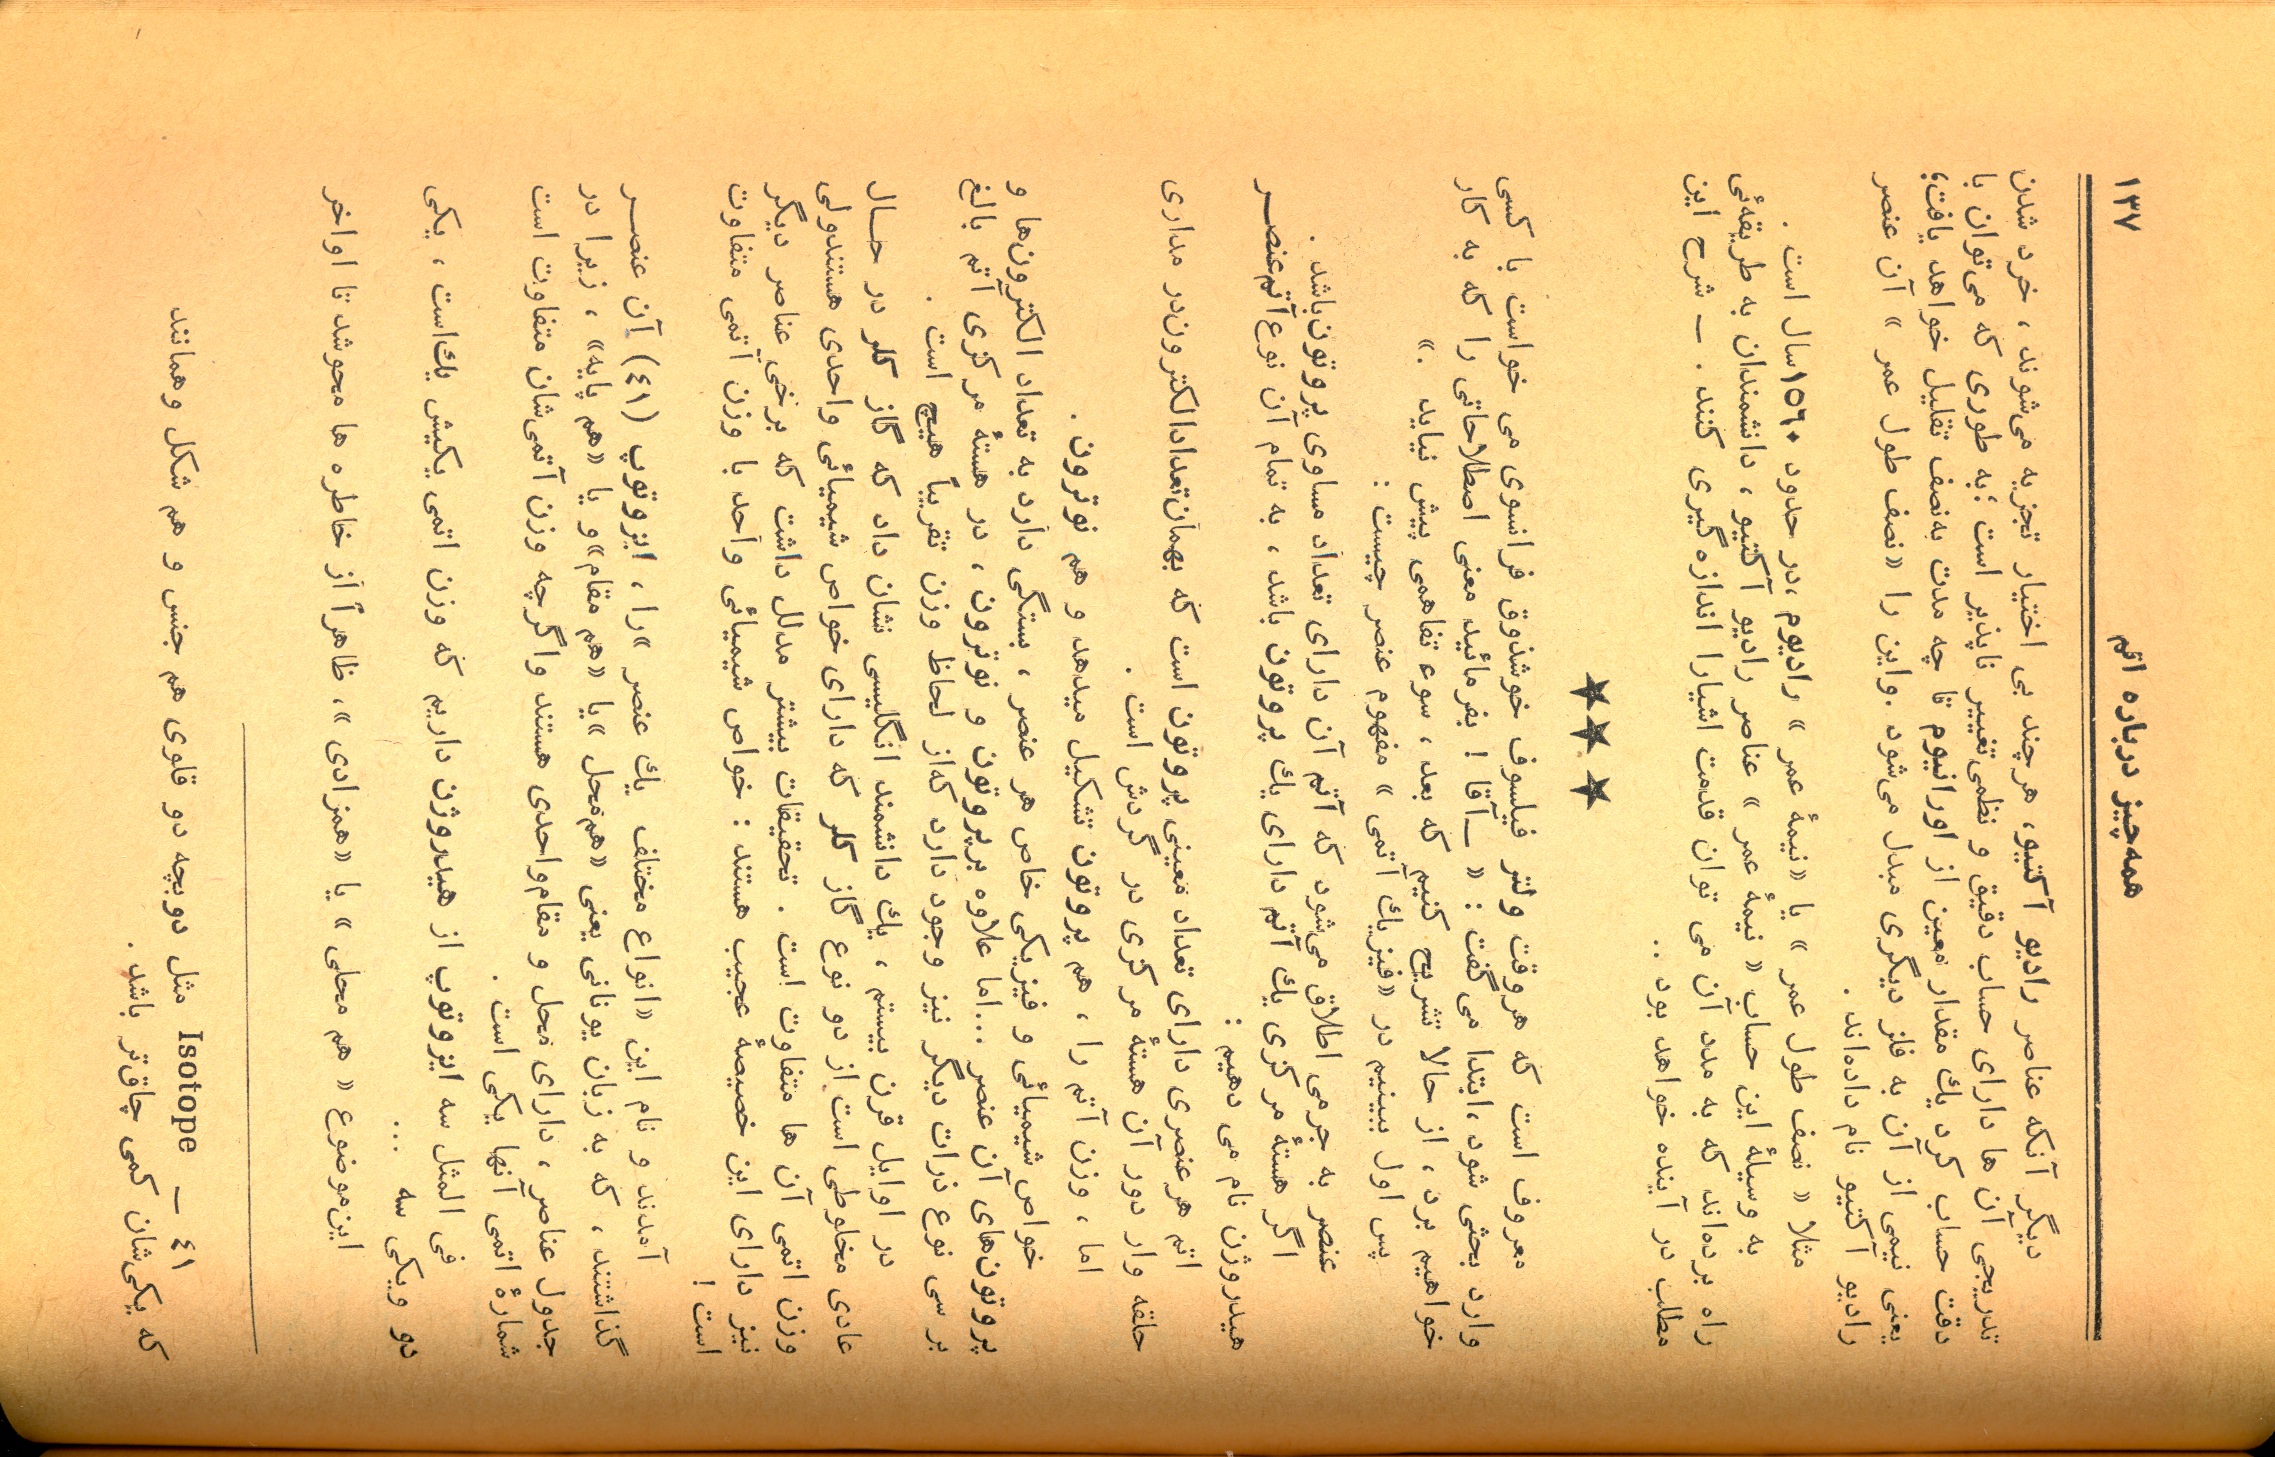 همه‌چیز درباره اتم
۱۳۷
دیگر آنکه عناصر رادیو آکتیو، هرچند بی اختیار تجزیه می‌شوند ، خرد شدن
تدریجی آن ها دارای حساب دقیق و نظمی تغییر ناپذیر است ؛ به طوری که می‌توان با
دقت حساب کرد یك مقدار معین از اورانیوم تا چه مدت به نصف تقلیل خواهد یافت؛
یعنی نیمی از آن به فلز دیگری مبدل می‌شود . واین را «نصف طول عمر » آن عنصر
رادیو آکتیو نام داده‌اند .
مثلا « نصف طول عمر » یا «نیمهٔ عمر » رادیوم ،در حدود ۱۵۶۰سال است .
به وسیلهٔ این حساب « نیمهٔ عمر » عناصر رادیو آکتیو ، دانشمندان به طریقه‌ئی
راه برده‌اند که به مدد آن می توان قدمت اشیارا اندازه گیری کنند . – شرح این
مطلب در آینده خواهد بود ..
★ ★ ★
معروف است که هروقت ولتر فیلسوف خوشذوق فرانسوی می خواست با کسی
وارد بحثی شود ،ابتدا می گفت : « –آقا ! بفرمائید معنی اصطلاحاتی را که به کار
خواهیم برد ، از حالا تشریح کنیم که بعد ، سوء تفاهمی پیش نیاید .»
پس اول ببینیم در «فیزیك آتمی » مفهوم عنصر چیست :
عنصر به جرمی اطلاق می‌شود که آتم آن دارای تعداد مساوی پروتون‌باشد .
اگر هستهٔ مرکزی یك آتم دارای یك پروتون باشد ، به تمام آن نوع آتم‌عنصر
هیدروژن نام می دهیم :
اتم هرعنصری دارای تعداد معینی پروتون است که بهمان‌تعدادالکترون‌در مداری
حلقه وار دور آن هستهٔ مرکزی در گردش است .
اما ، وزن آتم را ، هم پروتون تشکیل میدهد و هم نوترون .
خواص شیمیائی و فیزیکی خاص هر عنصر ، بستگی دارد به تعداد الکترون‌ها و
پروتون‌های آن عنصر ...اما علاوه برپروتون و نوترون ، در هستهٔ مرکزی آتم بالغ
بر سی نوع ذرات دیگر نیز وجود دارد که‌از لحاظ وزن تقریباً هیچ است .
در اوایل قرن بیستم ، یك دانشمند انگلیسی نشان داد که گاز کلر در حال
عادی مخلوطی است از دو نوع گاز کلر که دارای خواص شیمیائی واحدی هستندولی
وزن اتمی آن ها متفاوت است . تحقیقات بیشتر مدلل داشت که برخی عناصر دیگر
نیز دارای این خصیصهٔ عجیب هستند : خواص شیمیائی واحد با وزن آتمی متفاوت
است !
آمدند و نام این «انواع مختلف یك عنصر »را ، ایزوتوپ (٤١) آن عنصر
گذاشتند ، که به زبان یونانی یعنی «هم‌محل »یا «هم مقام»و یا «هم پایه» ، زیرا در
جدول عناصر ، دارای محل و مقام‌واحدی هستند واگرچه وزن آتمی‌شان متفاوت است
شمارهٔ اتمی آنها یکی است .
فی المثل سه ایزوتوپ از هیدروژن داریم که وزن اتمی یکیش یك‌است ، یکی
دو ویکی سه ...
این‌موضوع « هم محلی » یا «همزادی »، ظاهراً از خاطره ها محوشد تا اواخر
٤١ – Isotope مثل دوبچه دو قلوی هم جنس و هم شکل وهمانند
که یکی‌شان کمی چاق‌تر باشد.